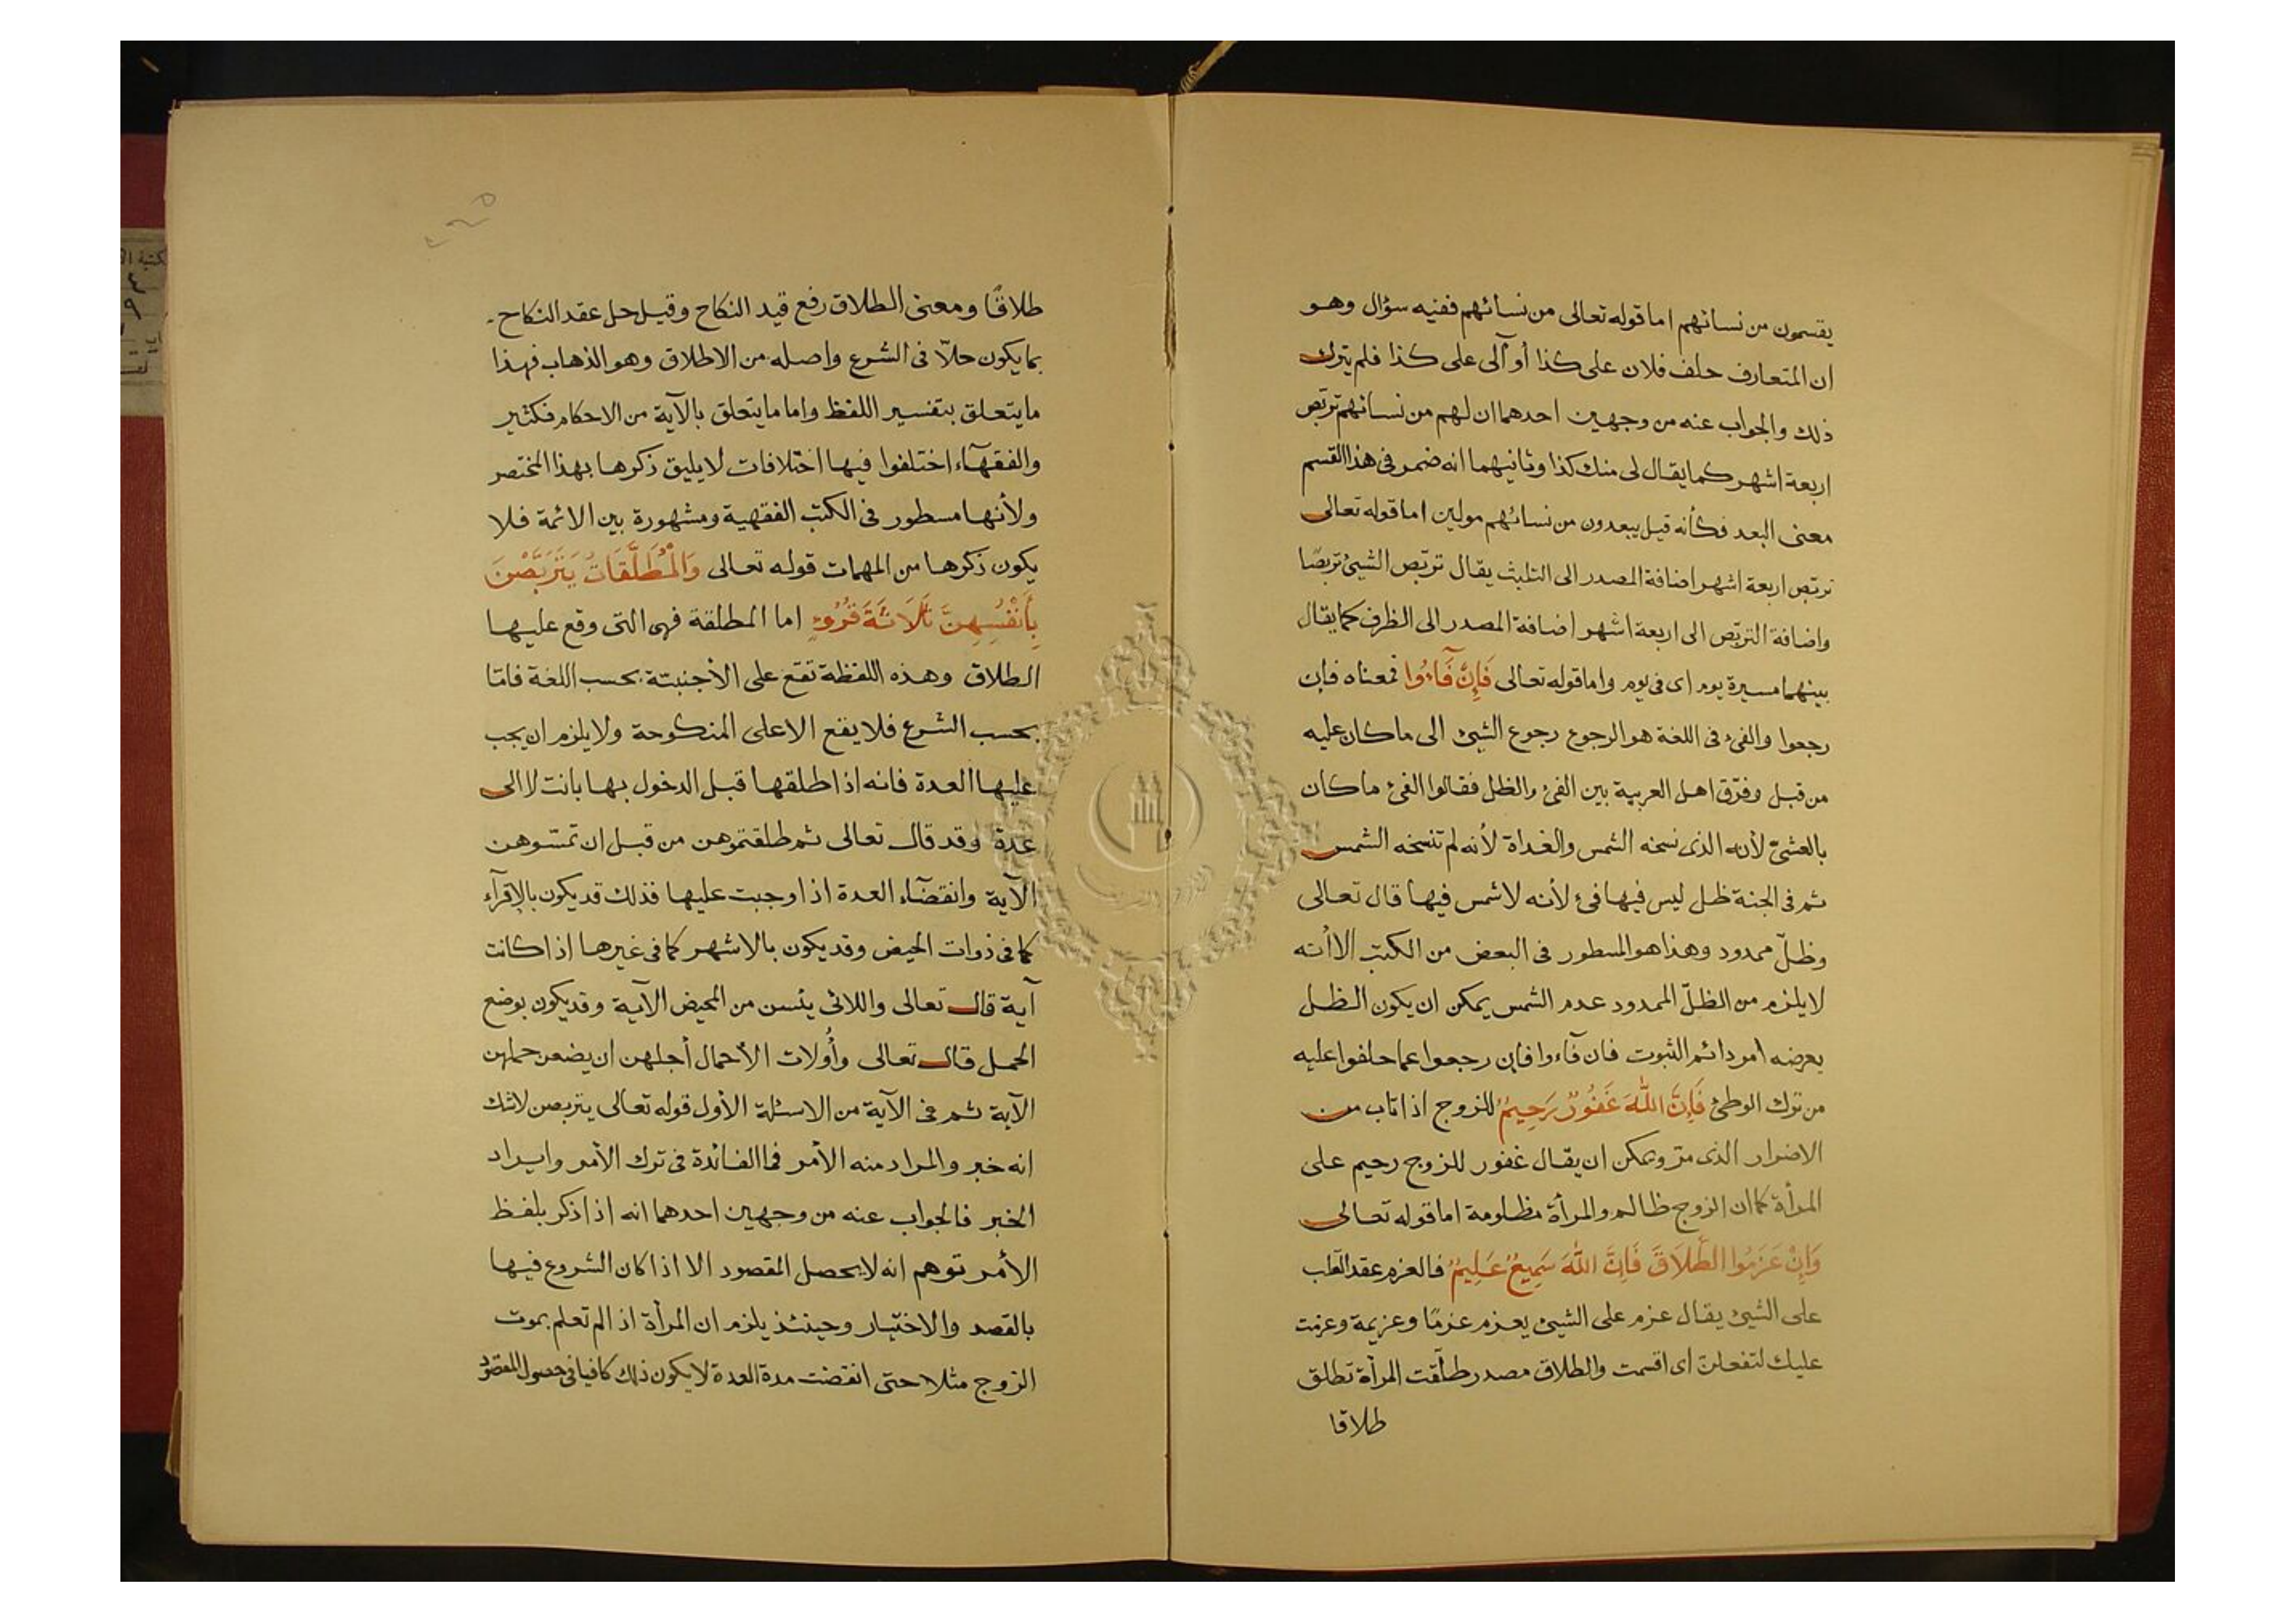 يقسمون من نسائهم اما قوله تعالى من نسائهم ففيه سؤال وهو
ان المتعارف حلف فلان على كذا أو آلى على كذا فلم يترك
ذلك والجواب عنه من وجهين احدهما ان لهم من نسائهم تربّص
اربعة اشهر كما يقال لى منك كذا وثانيهما انه ضمر فى هذا القسم
معنى البعد فكأنه قيل يبعدون من نسائهم مولين اما قوله تعالى
تربّص اربعة اشهر اضافة المصدر الى يقال تربّص الشيئ تربصًا
واضافة التربّص الى اربعة اشهر اضافة المصدر الى الظرف كما يقال
بينهما مسيرة يوم اى فى يوم واما قوله تعالى فَإِنْ فَآءُوا فمعناه فان
رجعوا والفئ فى اللغة هو الرجوع رجوع الشيئ الى ما كان عليه
من قبل وفرّق اهل العربية بين الفئ والظل فقالوا الفئ ما كان
بالعشىّ لأنه الذى نسخه الشمس والغداة لأنه لم تنسخه الشمس
ثم فى الجنة ظل ليس فيها فئ لأنه لا شمس فيها قال تعالى
وظلّ ممدود وهذا هو المسطور فى البعض من الكتب الا أنه
لا يلزم من الظلّ الممدود عدم الشمس يمكن ان يكون الظل
يعرضه امر دائم الثبوت فان فآءوا فان رجعوا عما حلفوا عليه
من ترك الوطئ فَإِنَّ اللّٰهَ غَفُورٌ رَحِيمٌ للزوج اذا تاب من
الاضرار الذى مرّ ويمكن ان يقال غفور للزوج رحيم على
المرأة كما ان الزوج ظالم والمرأة مظلومة اما قوله تعالى
وَإِنْ عَزَمُوا الطَّلَاقَ فَإِنَّ اللّٰهَ سَمِيعٌ عَلِيمٌ فالعزم عقد القلب
على الشيئ يقال عزم على الشيئ يعزم عزمًا وعزيمة وعزمت
عليك لتفعلن اى اقسمت والطلاق مصدر طلّقت المرأة تطلق
طلاقا
طلاقًا ومعنى الطلاق رفع قيد النكاح وقيل حل عقد النكاح
بما يكون حلاّ فى الشرع واصله من الاطلاق وهو الذهاب فهذا
ما يتعلق بتفسير اللفظ واما ما يتعلق بالآية من الاحكام فكثير
والفقهآء اختلفوا فيها اختلافات لا يليق ذكرها بهذا المختصر
ولأنها مسطور فى الكتب الفقهية ومشهورة بين الائمة فلا
يكون ذكرها من المهمات قوله تعالى وَالْمُطَلَّقَاتُ يَتَرَبَّصْنَ
بِأَنْفُسِهِنَّ ثَلَاثَةَ قُرُوءٍ اما المطلقة فهى التى وقع عليها
الطلاق وهذه اللفظة تقع على الأجنبية بحسب اللغة فامّا
بحسب الشرع فلا يقع الا على المنكوحة ولا يلزم ان يجب
عليها العدة فانه اذا طلقها قبل الدخول بها بانت لا الى
عدة وقد قال تعالى ثم طلقتموهن من قبل ان تمسّوهن
الآية وانقضآء العدة اذا وجبت عليها فذلك قد يكون بالاقرآء
كما فى ذوات الحيض وقد يكون بالاشهر كما فى غيرها اذا كانت
آية قال تعالى واللائى يئسن من المحيض الآية وقد يكون بوضع
الحمل قال تعالى وأُولات الأحمال أجلهن ان يضعن حملهن
الآية ثم فى الآية من الاسئلة الأول قوله تعالى يتربصن لا شك
انه خبر والمراد منه الأمر فما الفائدة فى ترك الأمر وايراد
الخبر فالجواب عنه من وجهين احدهما انه اذا ذكر بلفظ
الأمر توهم انه لا يحصل المقصود الا اذا كان الشروع فيها
بالقصد والاختيار وحينئذ يلزم ان المرأة اذا لم تعلم بموت
الزوج مثلا حتى انقضت مدة العدة لا يكون ذلك كافيا فى حصول المقصود